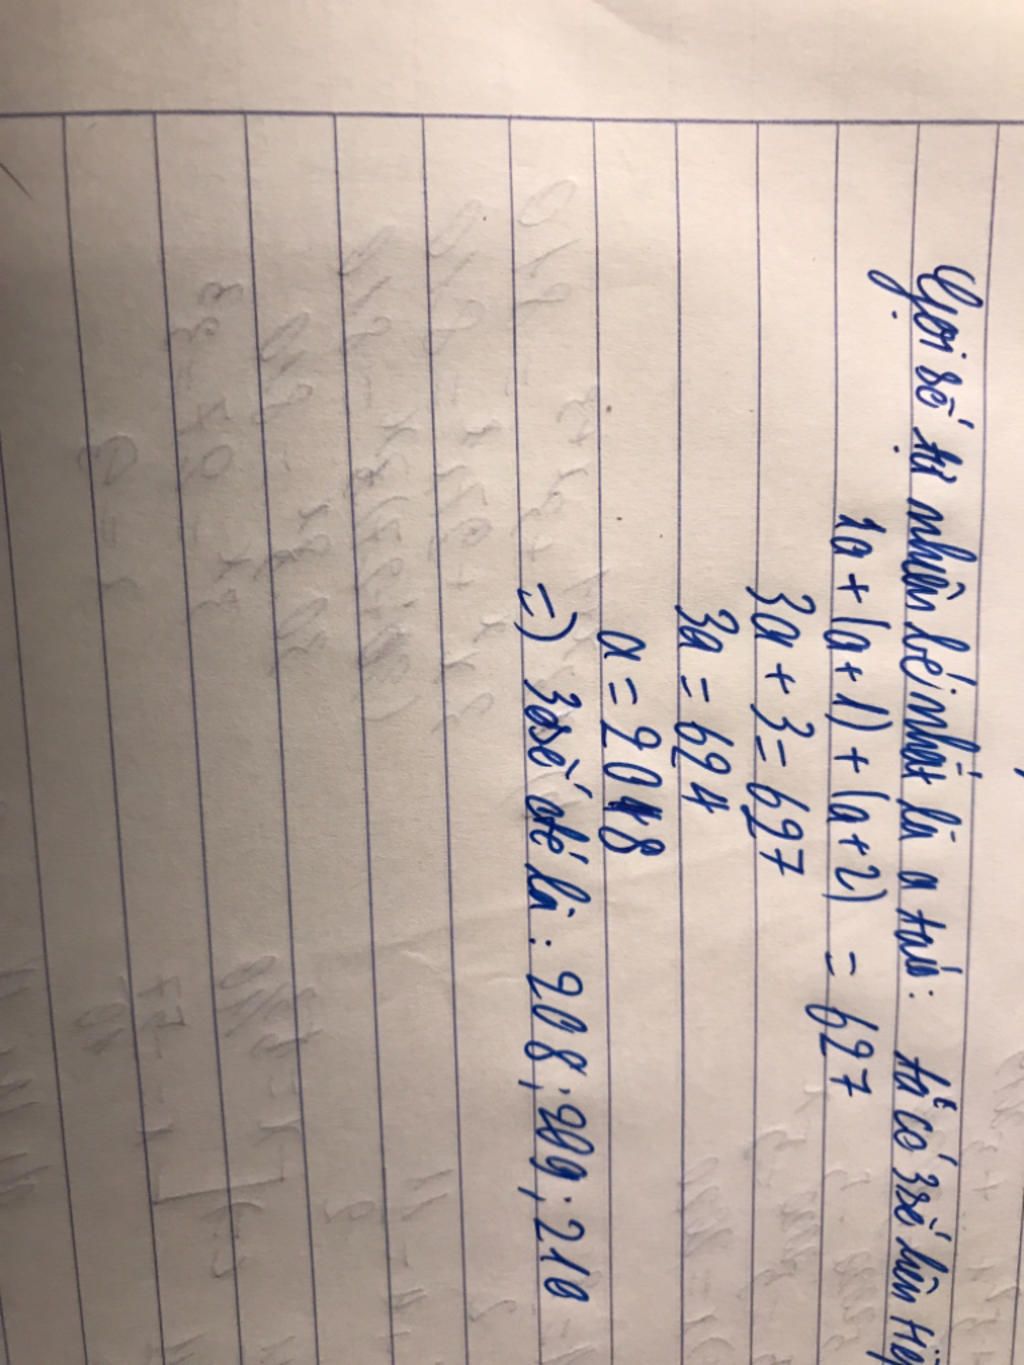 Gọi số tự nhiên bé nhất là a ta có 3 số liên
1a + (a+1) + (a+2) = 627
3a + 3 = 627
3a = 624
a = 208
=) 3 số đó là : 208 ; 209 ; 210